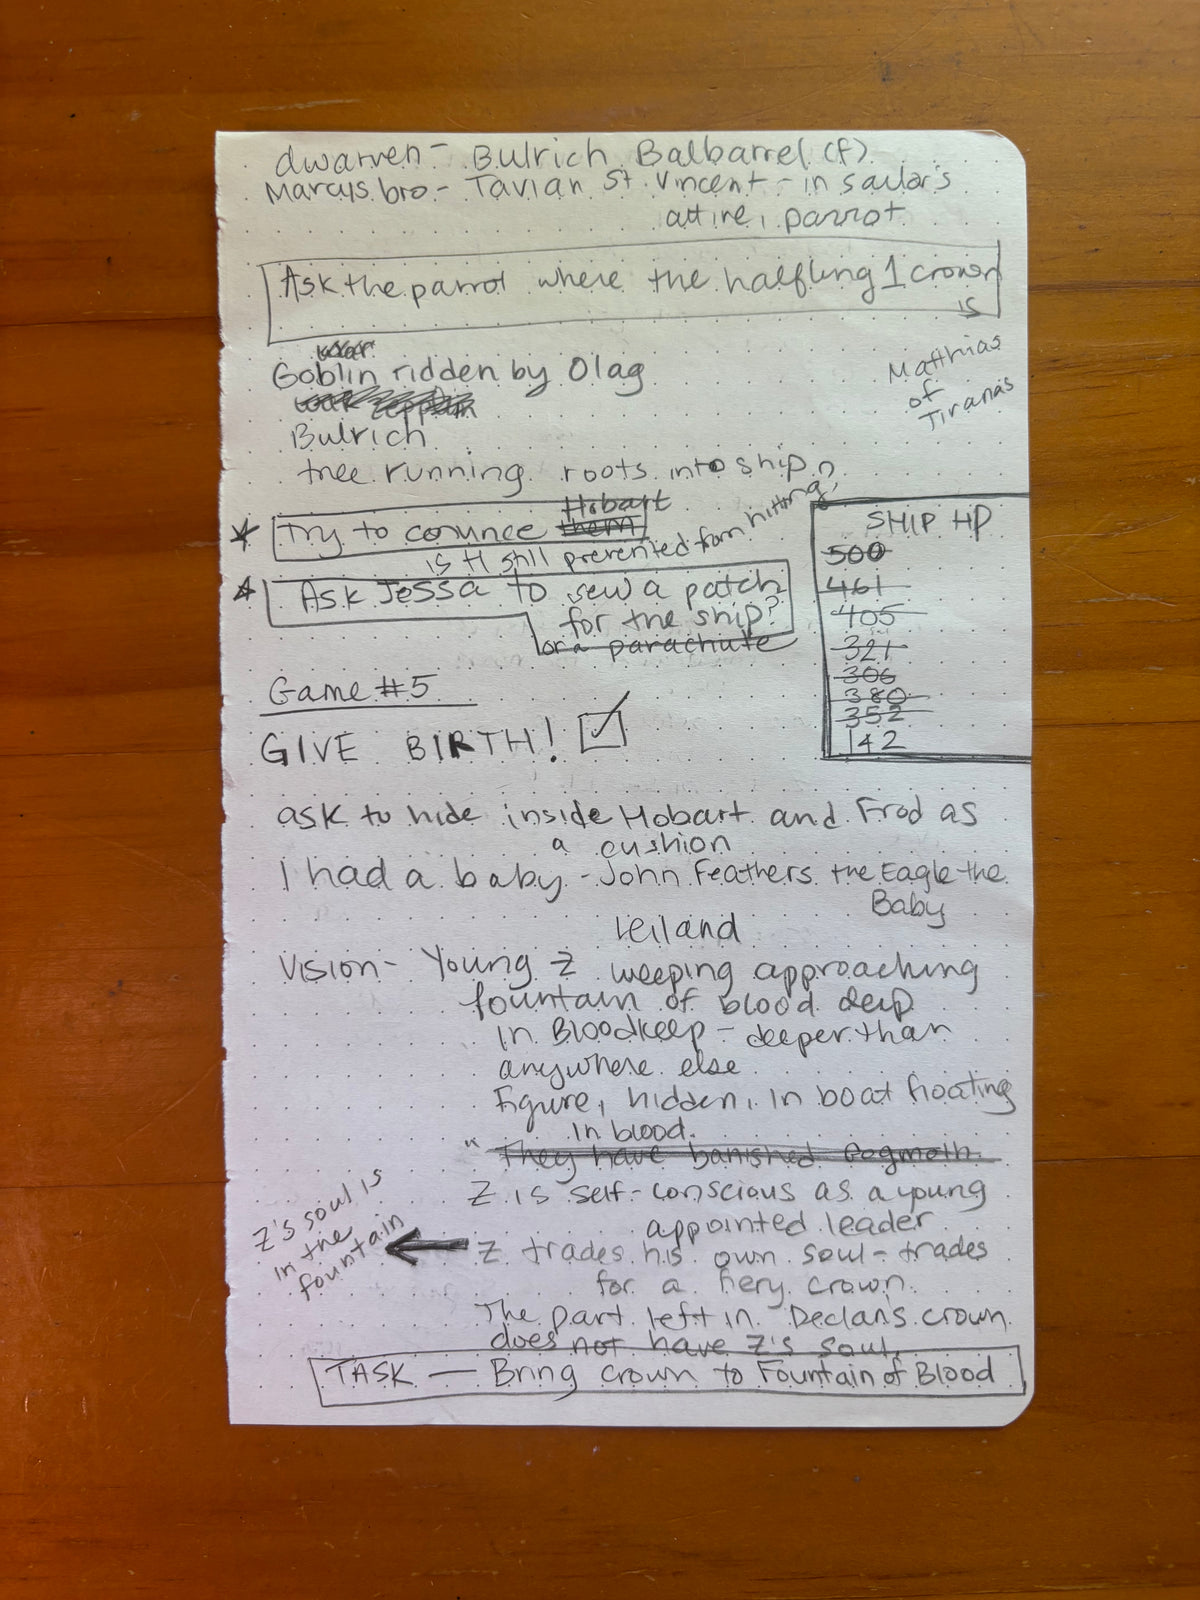 dwarven - Bulrich Balbarrel (f)
Marcus bro - Tavian St. Vincent - in sailor's
attire, parrot
Ask the parrot where the halfling 1 crown
is
Matthias
of
Tiranas
Goblin ridden by Olag
Bulrich
tree running roots into ship
Hobart
Try to convince them
is H still prevented from hitting?
Ask Jessa to sew a patch
for the ship?
or a parachute
SHIP HP
500
461
405
321
306
380
352
142
Game #5
GIVE BIRTH!
ask to hide inside Hobart and Frod as
a cushion
I had a baby - John Feathers the Eagle the
Baby
Leiland
Vision - Young Z weeping approaching
fountain of blood deep
in Bloodkeep - deeper than
anywhere else
Figure, hidden, in boat floating
in blood.
"They have banished
Z is self-conscious as a young
appointed leader
Z trades his own soul - trades
for a fiery crown.
Z's soul is
in the
fountain
The part left in Declans crown
does not have Z's soul.
TASK — Bring crown to Fountain of Blood